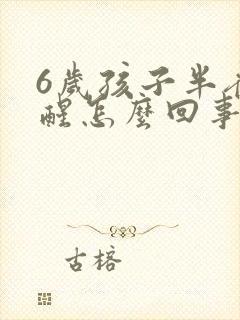 6歲孩子半
醒怎麼回事
古榕